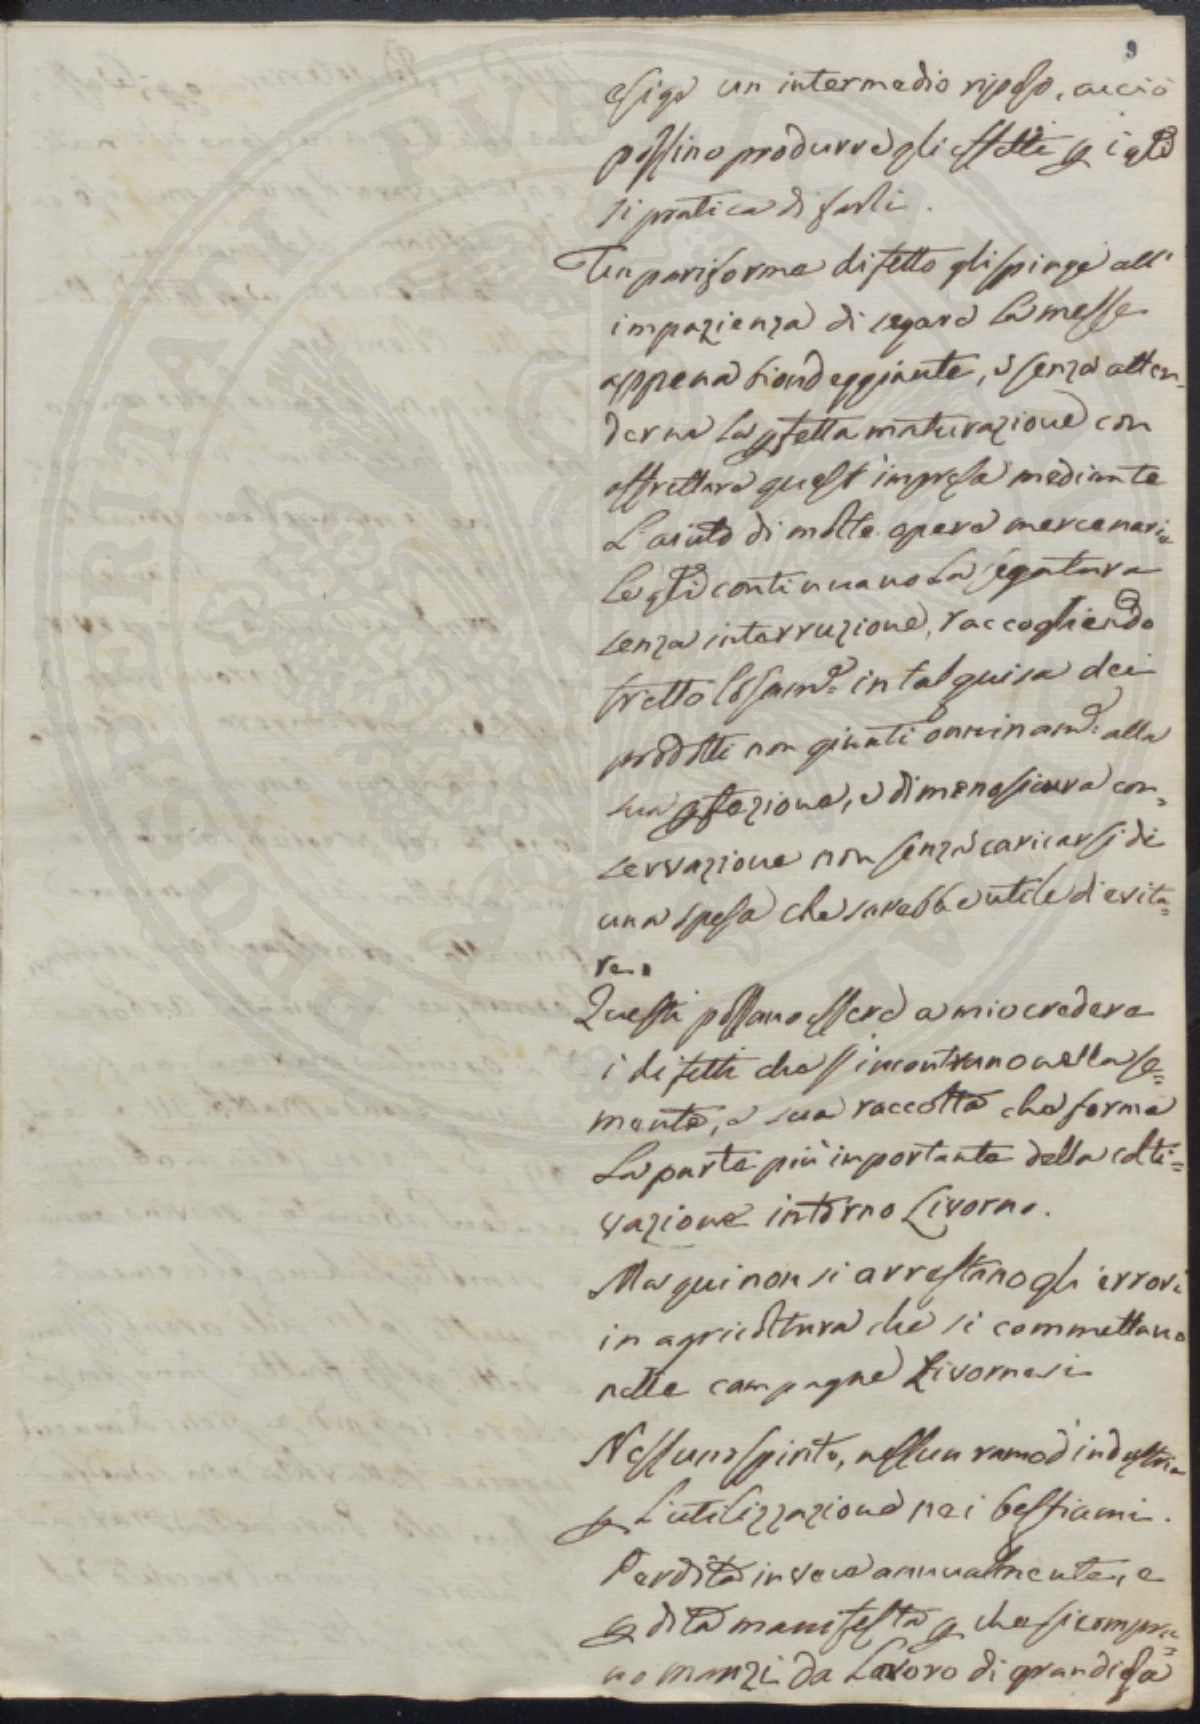 9
esige un intermedio riposo, acciò
possino produrre gli effetti p i qli
si pratica di farli.
Un pariforme difetto gli spinge all'
impazienza di segare la messe
appena biondeggiante, e senza atten-
derna la pfetta maturazione con
affrettare quest'impresa mediante
L'aiuto di molte opere mercenarie
le qli continuano la segatura
senza interruzione, raccogliendo
frettolosame in tal guisa dei
prodotti non giunti onniname alla
sua pfezione, e di meno sicura con=
servazione non senza caricarsi di
una spesa che sarebbe utile di evita=
re.
Questi possano essere a mio credere
i difetti che s'incontrano nella se=
mente, e sua raccolta che forma
La parte più importante della colti=
vazione intorno Livorno.
Ma qui non si arrestano gli errori
in agricoltura che si commettano
nelle campagne Livornesi
Nessuno spirito, nessun ramo d'industria
p L'utilizzazione nei bestiami.
Perdita invece annualmente, e
pdita manifesta p che si compra=
no manzi da Lavoro di grandiosa